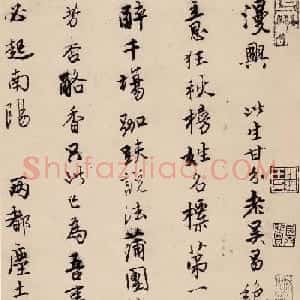 漫興 此生甘分老吳昌
狂秋榜姓名標第一
醉千場跏趺說法蒲團
芳杏酪香只此為吾
必起南陽 兩都塵土
Shufaziliao.com